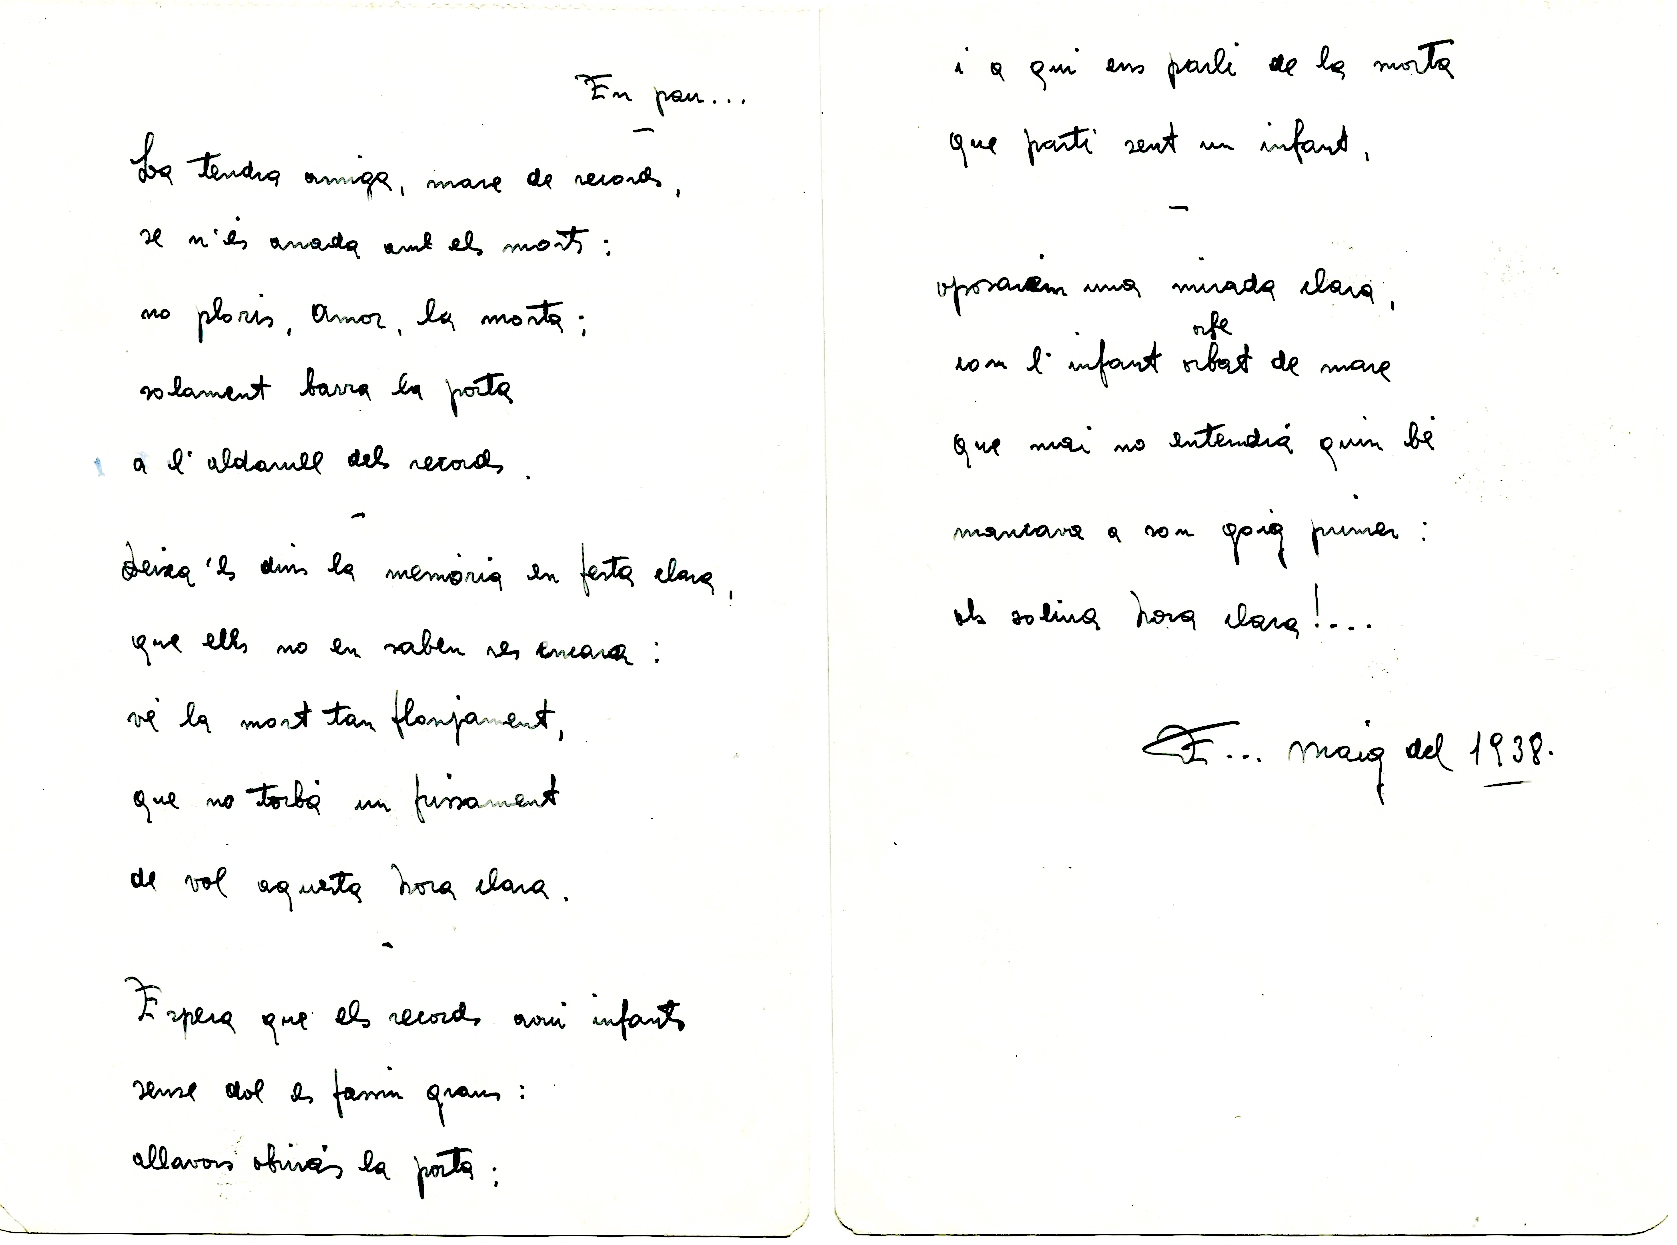 En pau...
La tendra amiga, mare de records,
se n'és anada amb els morts:
no ploris, Amor, la morta;
solament barra la porta
a l'aldarull dels records.
Deixa'ls dins la memòria en festa clara,
que ells no en saben res encara:
vé la mort tan flonjament,
que no torbà un frissament
de vol aquesta hora clara.
Espera que els records avui infants
sense dol es fassin grans:
allavors obriràs la porta;
i a qui ens parli de la morta
que partí sent un infant,
oposarém una mirada clara,
orfe
com l'infant orbat de mare
que mai no entendrà quin bé
mancava a son goig primer:
als solina hora clara!...
F... Maig del 1938.